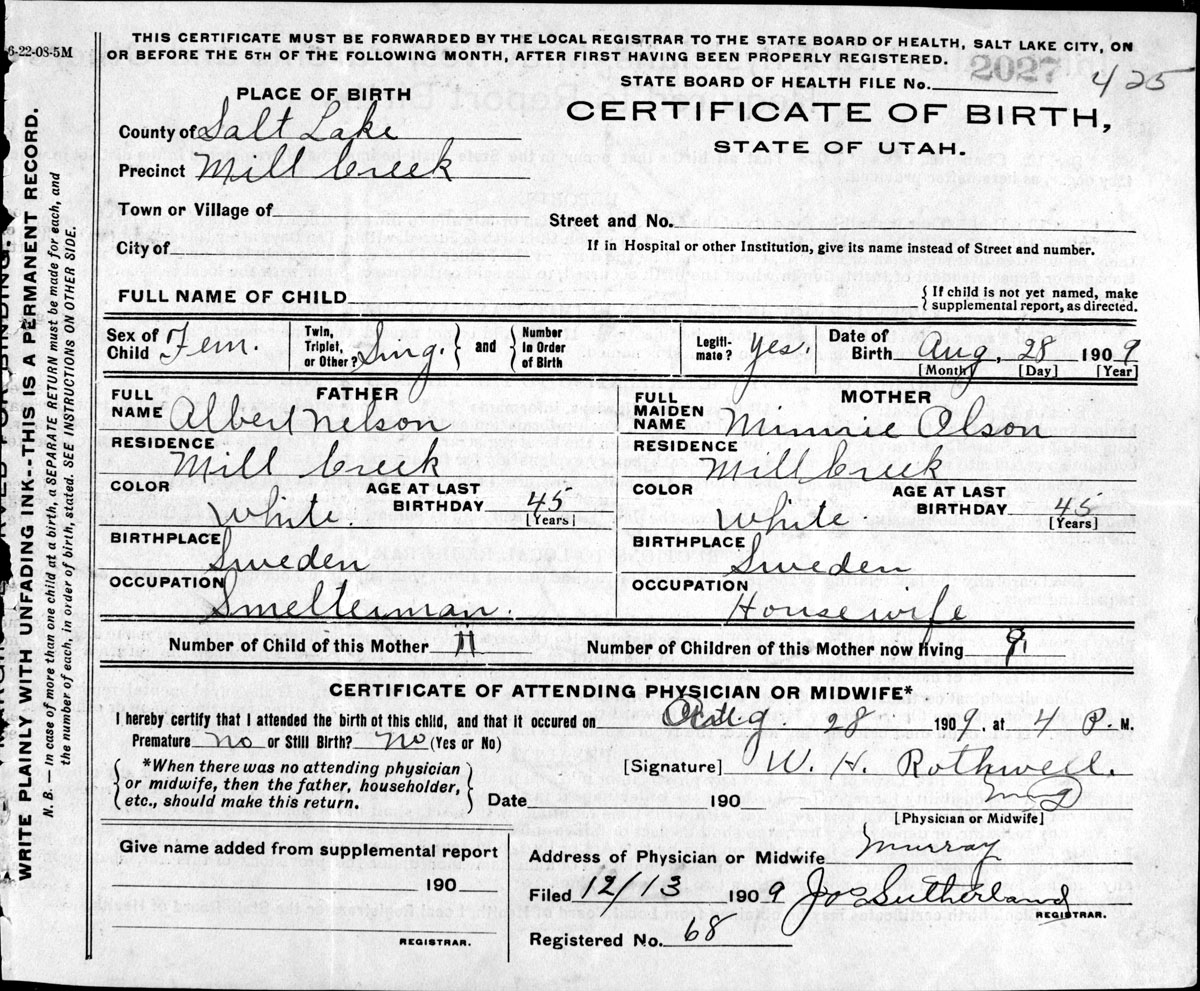 6-22-08-5M
THIS CERTIFICATE MUST BE FORWARDED BY THE LOCAL REGISTRAR TO THE STATE BOARD OF HEALTH, SALT LAKE CITY, ON
OR BEFORE THE 5TH OF THE FOLLOWING MONTH, AFTER FIRST HAVING BEEN PROPERLY REGISTERED.
STATE BOARD OF HEALTH FILE No. 2027 425
PLACE OF BIRTH
CERTIFICATE OF BIRTH,
STATE OF UTAH.
County of Salt Lake
Precinct Mill Creek
Town or Village of
Street and No.
City of
If in Hospital or other Institution, give its name instead of Street and number.
FULL NAME OF CHILD
{If child is not yet named, make
supplemental report, as directed.
Sex of Child Fem.
Twin, Triplet, or Other? Sing. } and { Number In Order of Birth
Legitimate? yes.
Date of Birth Aug, 28 1909
[Month] [Day] [Year]
FATHER
FULL NAME Albert Nelson
RESIDENCE
Mill Creek
COLOR White.
AGE AT LAST BIRTHDAY 45
[Years]
BIRTHPLACE
Sweden
OCCUPATION
Smelterman.
MOTHER
FULL MAIDEN NAME Minnie Olson
RESIDENCE
Mill Creek
COLOR White
AGE AT LAST BIRTHDAY 45
[Years]
BIRTHPLACE
Sweden
OCCUPATION
Housewife
Number of Child of this Mother 11
Number of Children of this Mother now living 9
CERTIFICATE OF ATTENDING PHYSICIAN OR MIDWIFE*
I hereby certify that I attended the birth ot this child, and that it occured on Aug. 28 1909, at 4 P. M.
Premature no or Still Birth? no (Yes or No)
{*When there was no attending physician
or midwife, then the father, householder,
etc., should make this return.}
[Signature] W. H. Rothwell.
MD
Date 190
[Physician or Midwife]
Give name added from supplemental report
190
REGISTRAR.
Address of Physician or Midwife Murray
Filed 12/13 1909 Jos Sutherland
REGISTRAR.
Registered No. 68
WRITE PLAINLY WITH UNFADING INK--THIS IS A PERMANENT RECORD.
N. B. — In case of more than one child at a birth, a SEPARATE RETURN must be made for each, and
the number of each, in order of birth, stated. SEE INSTRUCTIONS ON OTHER SIDE.